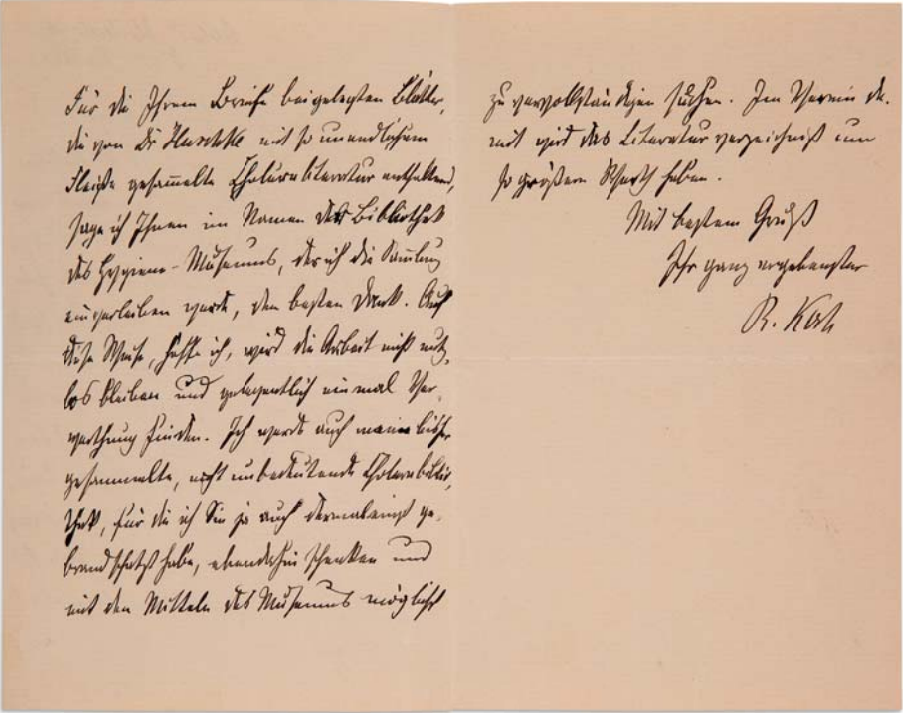 Für die Ihrem Briefe beigelegten Blätter,
die von Dr. Huschke mit so unendlichem
Fleiße gesam̄elte Choleraliteratur enthaltend,
sage ich Ihnen im Namen der Bibliothek
des Hygiene-Museums, der ich die Sam̄lung
einverleiben werde, den besten Dank. Auf
diese Weise, hoffe ich, wird die Arbeit nicht nutz-
los bleiben und gelegentlich einmal Ver-
werthung finden. Ich werde auch meine bisher
gesammelte, nicht unbedeutende Cholerabiblio-
thek, für die ich Sie ja auch dermaleinst ge-
brandschatzt habe, ebendahin schenken und
mit den Mitteln des Museums möglichst
zu vervollständigen suchen. Im Verein da-
mit wird das Literaturverzeichniß um
so größern Werth haben.
Mit bestem Gruß
Ihr ganz ergebenster
R. Koch